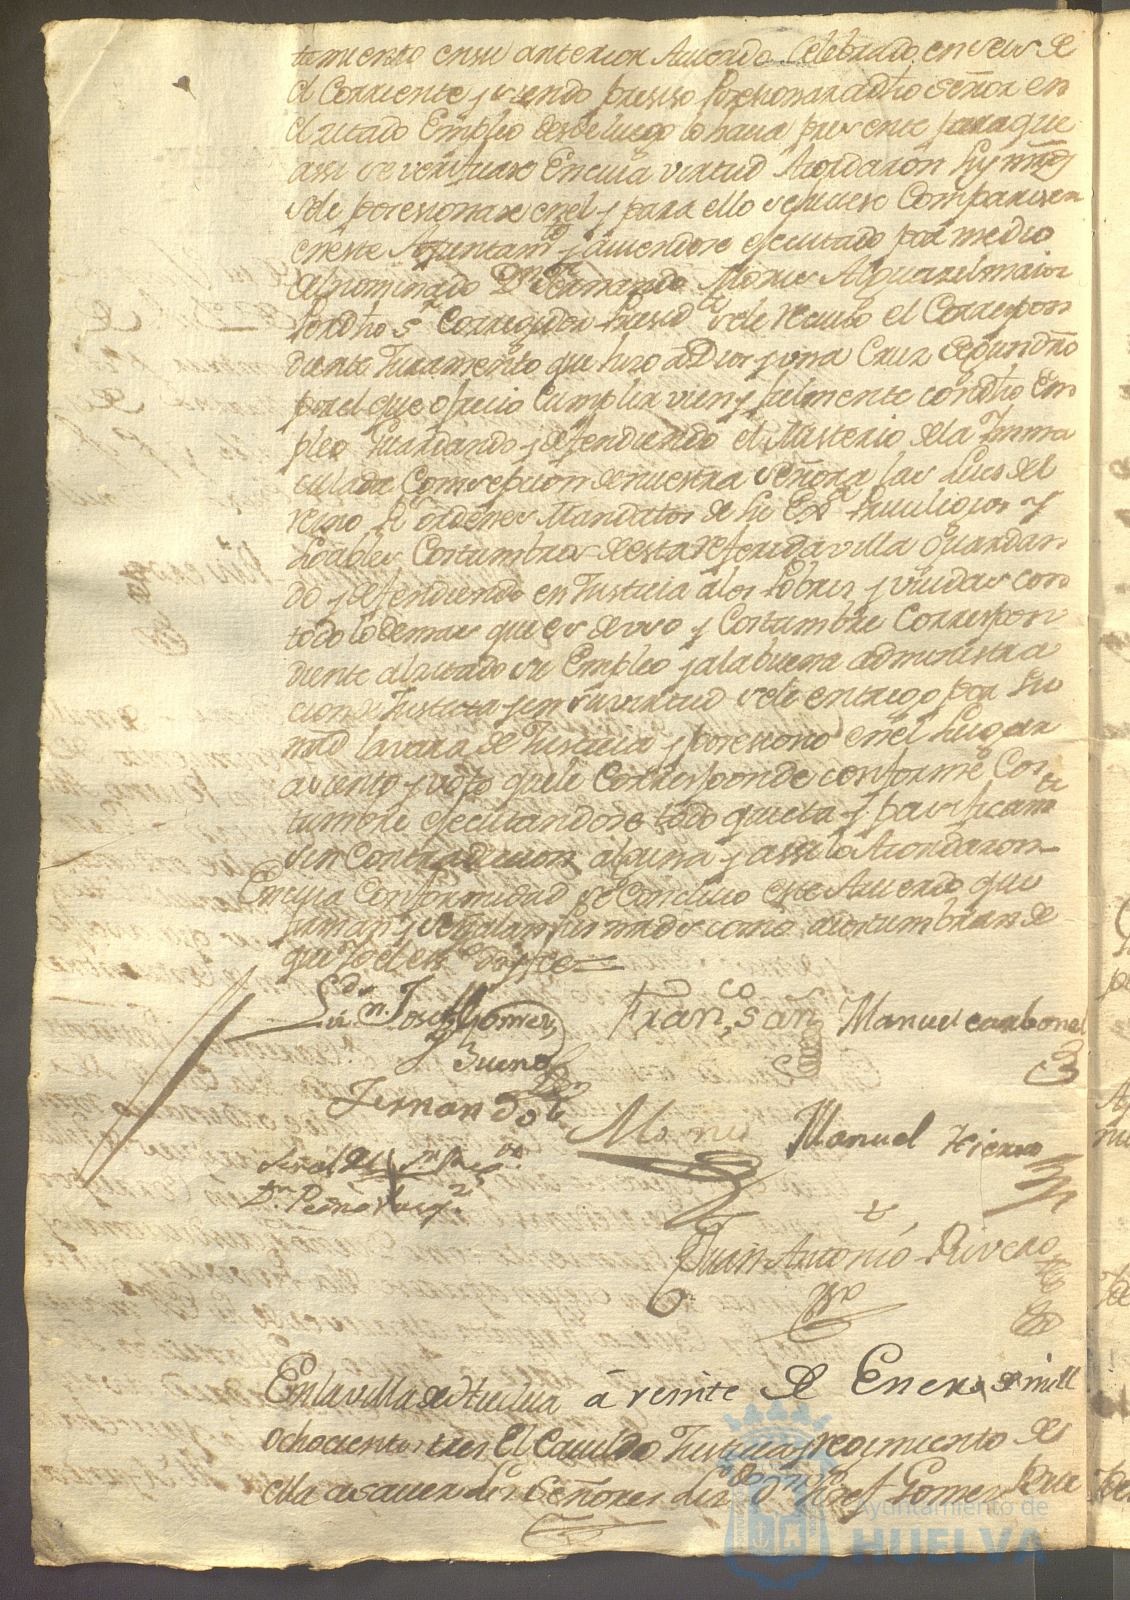 tamiento en su anterior Acuerdo Celebrado en seis de
el Corriente y siendo preciso posesionar a dho señor en
el zitado Empleo desde luego lo hacia presente para que
assi se verificase En cuia virtud Acordaron sus mrds
se le posesionase en el y para ello se hiciese Comparecer
en este Ayuntamto y haviendose ejecutado por medio
del nominado Dn Fernando Mories Alguacil maior
por dho Sr Corregidor Presidte se le recivio el Correspon
diente Juramento que hizo a Dios y una Cruz segun dro
por el que ofrecio Cumplir vien y fielmente con dho Em
pleo Guardando y defendiendo el Misterio de la Inma
culada Comsepcion de nuestra señora las Leies del
reino ordenes Mandatos de Su Exa Privilegios y
Loables Costumbres de esta referida villa Guardan
do y defendiendo en Justicia a los Pobres y viudas con
todo lo demas que es de uso y Costumbre Correspon
diente al zitado su Empleo y a la buena administra
cion de Justicia y en su virtud se le entrego por su
mrd la vara de Justicia y posesiono en el Lugar
asiento y voto que le Corresponde conforme Cos
tumbre ejecutandose todo quieta y pacificamte
sin Contradicion alguna y assi lo Acordaron
En cuia Conformidad se Concluio este Acuerdo que
firman y señalan sus mrds como acostumbran de
que Yo el esno doy fee=
Lizdo Dn. Josef Gomez
Bueno
Franco San Manuel carbonel
Fernando
Mories Manuel Hierro
Señal del
Dn. Pedro Vazqz
Juan Antonio Rivero
En la villa de Huelva á veinte de Enero de mill
ochocientos tres El Cavildo Justicia y regimiento de
ella a saver los Señores Lizdo Dn Josef Gomez Bue
Ayuntamiento de
HUELVA